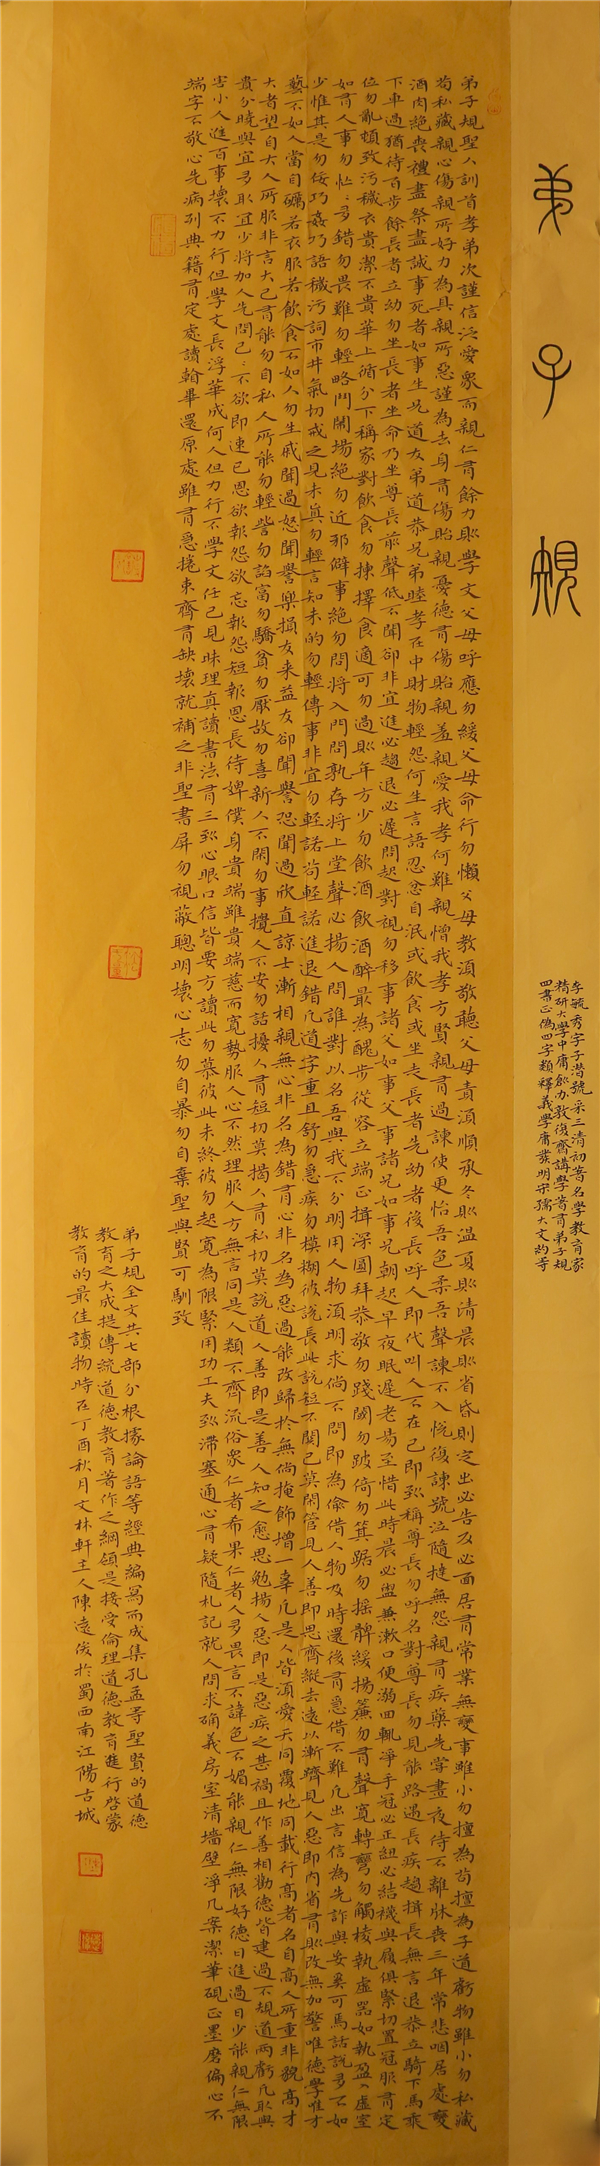 弟子規
李毓秀字子潛號采三清初著名學教育家
精研大學中庸創办敦復齋講學著有弟子規
四書正偽四字類釋義學庸發明宋孺大文約等
弟子規聖人訓首孝弟次謹信泛愛衆而親仁有餘力則學文父母呼應勿緩父母命行勿懶父母教須敬聽父母責須順承冬則温夏則清晨則省昏則定出必告反必面居有常業無變事雖小勿擅為苟擅為子道虧物雖小勿私藏
苟私藏親心傷親所好力為具親所惡謹為去身有傷貽親憂德有傷貽親羞親愛我孝何難親憎我孝方賢親有過諫使更怡吾色柔吾聲諫不入悅復諫號泣隨撻無怨親有疾藥先嘗晝夜侍不離牀喪三年常悲咽居處變
酒肉絕喪禮盡祭盡誠事死者如事生兄道友弟道恭兄弟睦孝在中財物輕怨何生言語忍忿自泯或飲食或坐走長者先幼者後長呼人即代叫人不在己即到稱尊長勿呼名對尊長勿見能路遇長疾趨揖長無言退恭立騎下馬乘
下車過猶待百步餘長者立幼勿坐長者坐命乃坐尊長前聲低不聞卻非宜進必趨退必遲問起對視勿移事諸父如事父事諸兄如事兄朝起早夜眠遲老易至惜此時晨必盥兼漱口便溺回輒淨手冠必正紐必結襪與履俱緊切置冠服有定
位勿亂頓致污穢衣貴潔不貴華上循分下稱家對飲食勿揀擇食適可勿過則年方少勿飲酒飲酒醉最為醜步從容立端正揖深圓拜恭敬勿踐閾勿跛倚勿箕踞勿摇髀緩揭簾勿有聲寬轉彎勿觸棱執虛器如執盈入虛室
如有人事勿忙忙多錯勿畏難勿輕略鬥鬧場絕勿近邪僻事絕勿問將入門問孰存將上堂聲必揚人問誰對以名吾與我不分明用人物須明求倘不問即為偷借人物及時還後有急借不難凡出言信為先詐與妄奚可焉話說多不如
少惟其是勿佞巧奸巧語穢污詞市井氣切戒之見未真勿輕言知未的勿輕傳事非宜勿輕諾苟輕諾進退錯凡道字重且舒勿急疾勿模糊彼說長此說短不關己莫閑管見人善即思齊縱去遠以漸躋見人惡即內省有則改無加警唯德學唯才
藝不如人當自礪若衣服若飲食不如人勿生戚聞過怒聞譽樂損友來益友卻聞譽恐聞過欣直諒士漸相親無心非名為錯有心非名為惡過能改歸於無倘掩飾增一辜凡是人皆須愛天同覆地同載行高者名自高人所重非貌高才
大者望自大人所服非言大己有能勿自私人所能勿輕訾勿諂富勿驕貧勿厭故勿喜新人不閑勿事攪人不安勿話擾人有短切莫揭人有私切莫說道人善即是善人知之愈思勉揚人惡即是惡疾之甚禍且作善相勸德皆建過不規道兩虧凡取與
貴分曉與宜多取宜少將加人先問己己不欲即速已恩欲報怨欲忘報怨短報恩長待婢僕身貴端雖貴端慈而寬勢服人心不然理服人方無言同是人類不齊流俗衆仁者希果仁者人多畏言不諱色不媚能親仁無限好德日進過日少能親仁無限
害小人進百事壞不力行但學文長浮華成何人但力行不學文任己見昧理真讀書法有三到心眼口信皆要方讀此勿慕彼此未終彼勿起寬為限緊用功工夫到滯塞通心有疑隨札記就人問求确義房室清墻壁淨几案潔筆硯正墨磨偏心不
端字不敬心先病列典籍有定處讀翰畢還原處雖有急捲束齊有缺壞就補之非聖書屏勿視蔽聰明壞心志勿自暴勿自棄聖與賢可馴致
弟子規全文共七部分根據論語等經典編寫而成集孔孟等聖賢的道德
教育之大成提傳統道德教育著作之綱領是接受倫理道德教育進行啓蒙
教育的最佳讀物時在丁酉秋月文林軒主人陳遠俊於蜀西南江陽古城